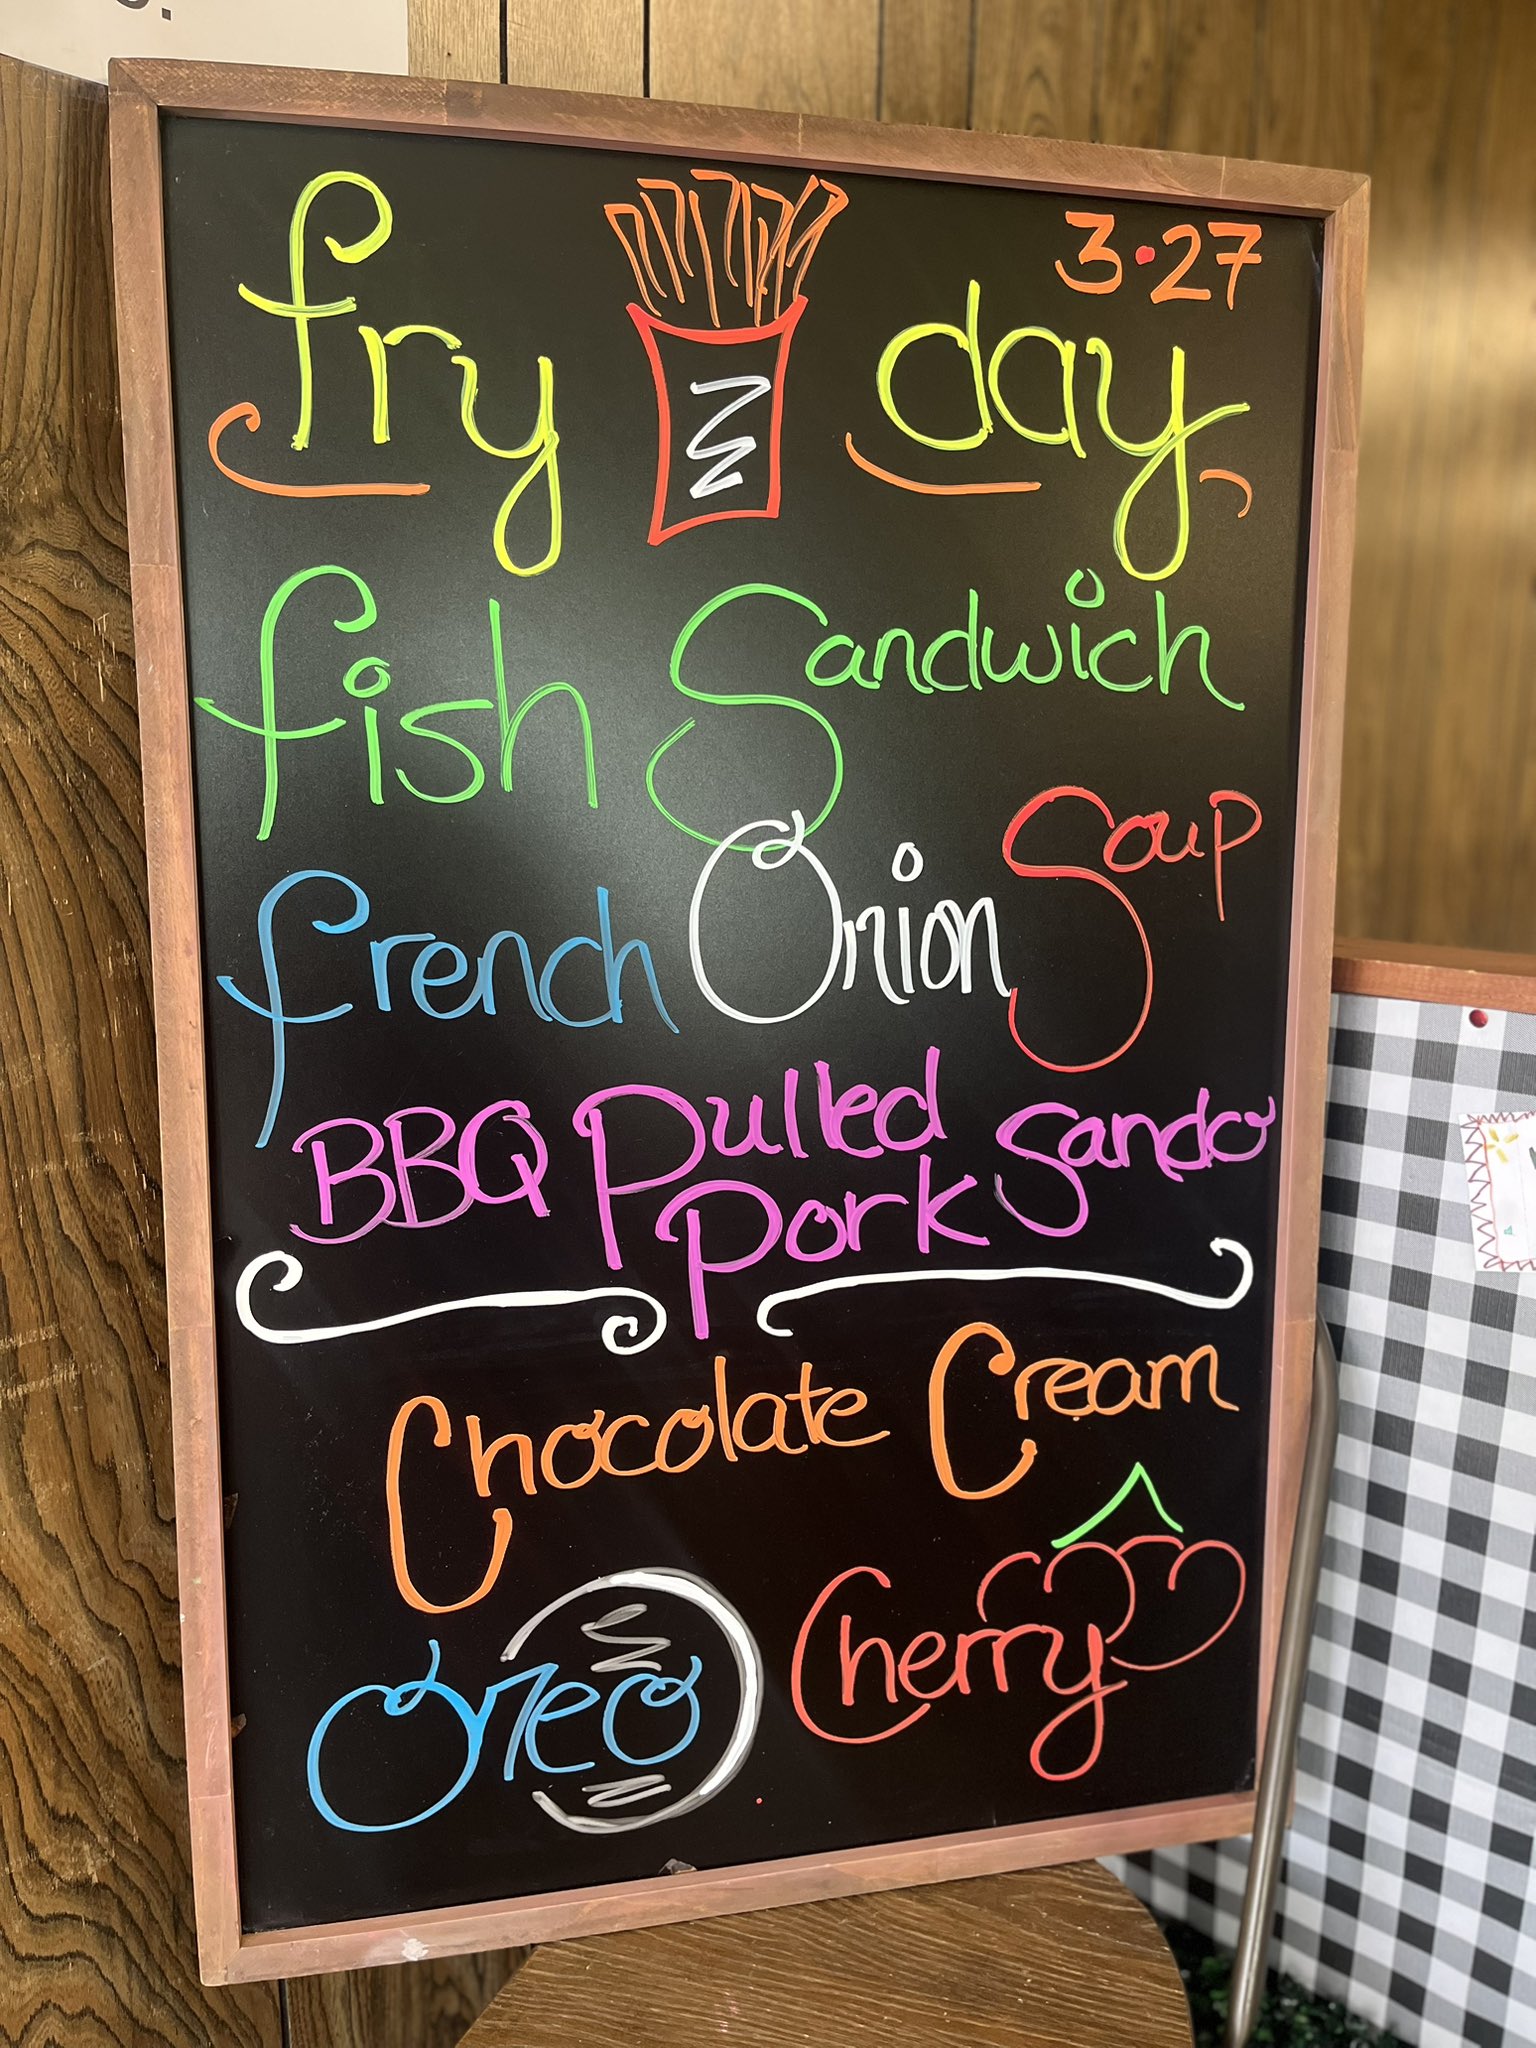 3.27
fry day
fish Sandwich
french Onion Soup
BBQ Pulled Pork Sando
Chocolate Cream
Oreo Cherry